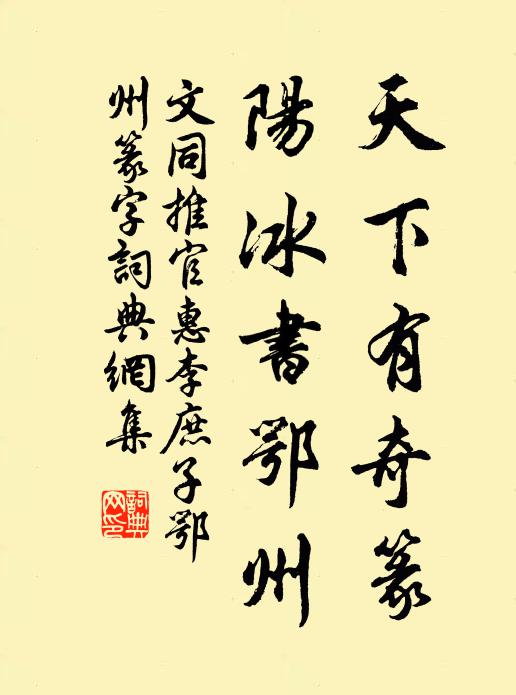 天下有奇篆
陽冰書鄂州
文同推官惠李庶子鄂
州篆字詞典網集
詞典
网印